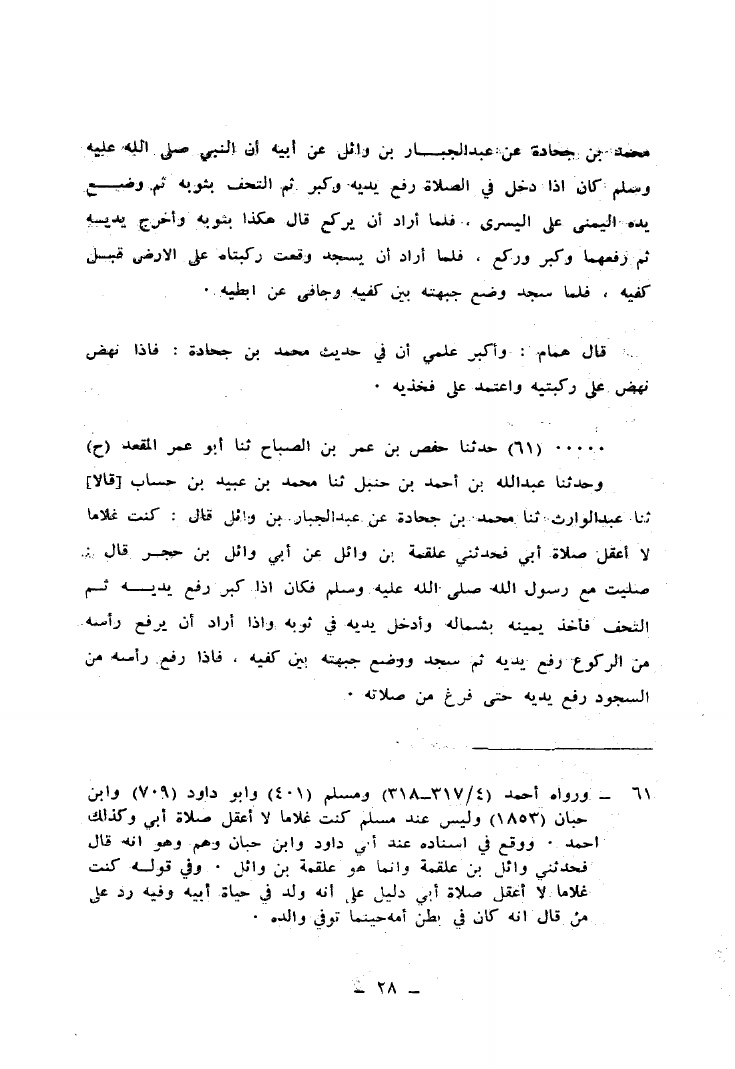 محمد بن جحادة عن عبدالجبـــار بن وائل عن أبيه أن النبي صلى الله عليه
وسلم كان اذا دخل في الصلاة رفع يديه وكبر ثم التحف بثوبه ثم وضـــع
يده اليمنى على اليسرى ، فلما أراد أن يركع قال هكذا بثوبه وأخرج يديـه
ثم رفعهما وكبر وركع ، فلما أراد أن يسجد وقعت ركبتاه على الارض قبـل
كفيه ، فلما سجد وضع جبهته بين كفيه وجافى عن ابطيه ٠
قال همام : وأكبر علمي أن في حديث محمد بن جحادة : فاذا نهض
نهض على ركبتيه واعتمد على فخذيه ٠
٠٠٠٠٠ (٦١) حدثنا حفص بن عمر بن الصباح ثنا أبو عمر المقعد (ح)
وحدثنا عبدالله بن أحمد بن حنبل ثنا محمد بن عبيد بن حساب [قالا]
ثنا عبدالوارث ثنا محمد بن جحادة عن عبدالجبار بن وائل قال : كنت غلاما
لا أعقل صلاة أبي فحدثني علقمة بن وائل عن أبي وائل بن حجـر قال :
صليت مع رسول الله صلى الله عليه وسلم فكان اذا كبر رفع يديـــه ثـم
التحف فأخذ يمينه بشماله وأدخل يديه في ثوبه واذا أراد أن يرفع رأسه
من الركوع رفع يديه ثم سجد ووضع جبهته بين كفيه ، فاذا رفع رأسه من
السجود رفع يديه حتى فرغ من صلاته ٠
٦١ ــ ورواه أحمد (٤/٣١٧ــ٣١٨) ومسلم (٤٠١) وابو داود (٧٠٩) وابن
حبان (١٨٥٣) وليس عند مسلم كنت غلاما لا أعقل صلاة أبي وكذلك
احمد ٠ ووقع في اسناده عند أبي داود وابن حبان وهم وهو انه قال
فحدثني وائل بن علقمة وانما هو علقمة بن وائل ٠ وفي قولـه كنت
غلاما لا أعقل صلاة أبي دليل على أنه ولد في حياة أبيه وفيه رد على
من قال انه كان في بطن أمه حينما توفي والده ٠
ــ ٢٨ ــ